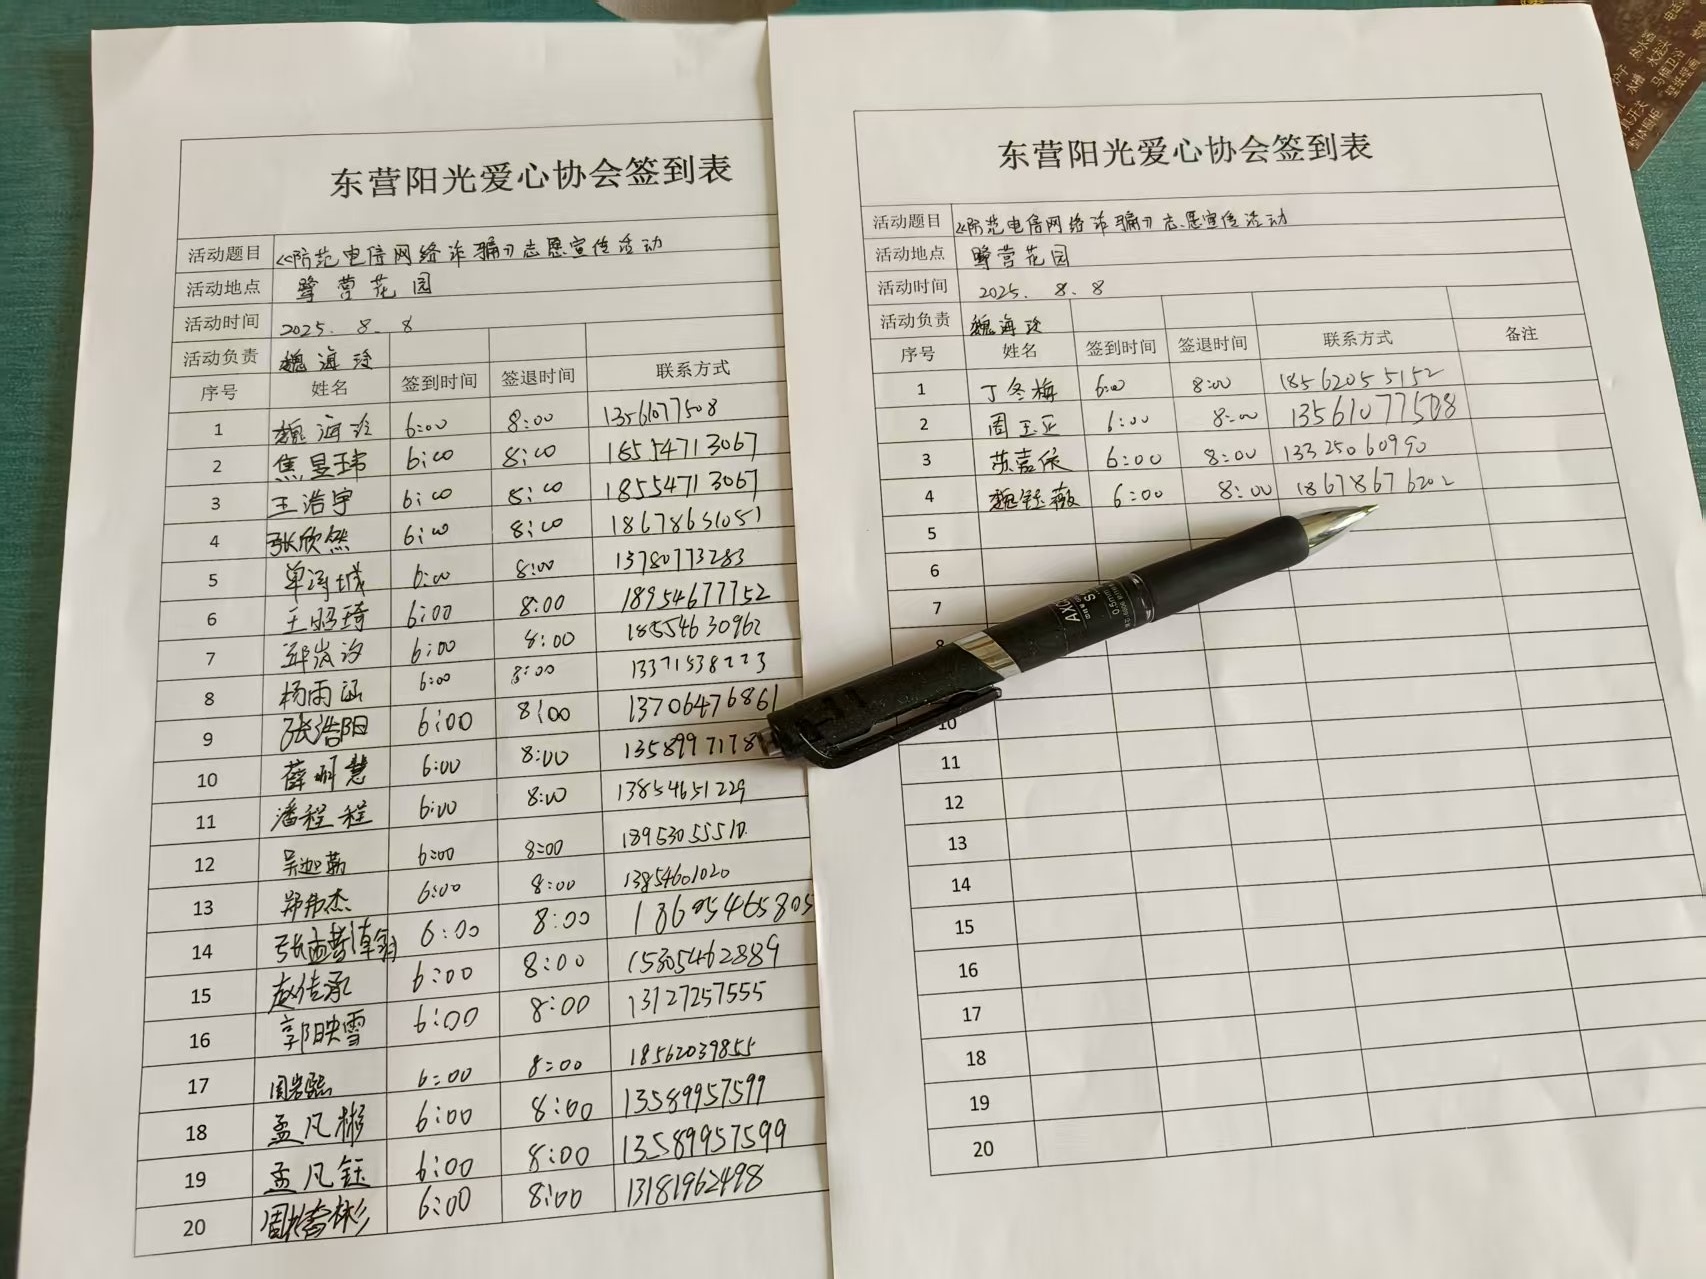 东营阳光爱心协会签到表
活动题目 《防范电信网络诈骗》志愿宣传活动
活动地点 鹭营花园
活动时间 2025. 8. 8
活动负责 魏海玲
序号 姓名 签到时间 签退时间 联系方式
1 魏海玲 6:00 8:00 13561077508
2 焦昱玮 6:00 8:00 18554713067
3 王浩宇 6:00 8:00 18554713067
4 张欣然 6:00 8:00 18678651051
5 6:00 8:00 13780773283
6 王昭琦 6:00 8:00 18954677752
7 6:00 8:00 18554630962
8 杨雨涵 6:00 8:00 13371538223
9 张浩阳 6:00 8:00 13706476861
10 薛 慧 6:00 8:00 1358997178
11 潘程程 6:00 8:00 13854651229
12 6:00 8:00 18953055510
13 郑弗杰 6:00 8:00 13854601020
14 6:00 8:00 18695465805
15 赵传承 6:00 8:00 15305462889
16 郭映雪 6:00 8:00 13127257555
17 6:00 8:00 18562039855
18 孟凡彬 6:00 8:00 13589957599
19 孟凡钰 6:00 8:00 13589957599
20 6:00 8:00 13181962498
东营阳光爱心协会签到表
活动题目 《防范电信网络诈骗》志愿宣传活动
活动地点 鹭营花园
活动时间 2025. 8. 8
活动负责 魏海玲
序号 姓名 签到时间 签退时间 联系方式 备注
1 丁冬梅 6:00 8:00 18562055152
2 周玉亚 6:00 8:00 13561077508
3 苏嘉依 6:00 8:00 13325060990
4 魏钰薇 6:00 8:00 18678676202
5
6
7
10
11
12
13
14
15
16
17
18
19
20
0.5mm